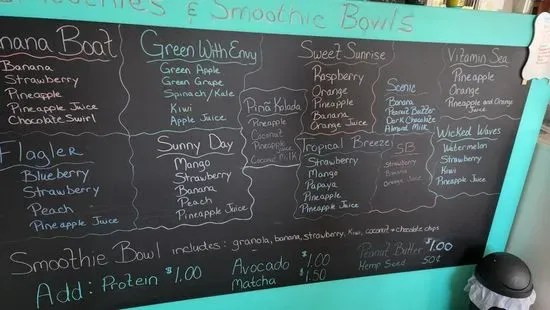 & Smoothie Bowls
Banana Boat
Banana
Strawberry
Pineapple
Pineapple Juice
Chocolate Swirl
Green With Envy
Green Apple
Green Grape
Spinach/Kale
Kiwi
Apple Juice
Piña Kolada
Pineapple
Coconut
Pineapple Juice
Coconut Milk
Sweet Sunrise
Raspberry
Orange
Pineapple
Banana
Orange Juice
Scenic
Banana
Peanut Butter
Dark Chocolate
Almond Milk
Vitamin Sea
Pineapple
Orange
Pineapple and Orange
Juice
Flagler
Blueberry
Strawberry
Peach
Pineapple Juice
Sunny Day
Mango
Strawberry
Banana
Peach
Pineapple Juice
Tropical Breeze
Strawberry
Mango
Papaya
Pineapple
Pineapple Juice
SB
Strawberry
Banana
Orange Juice
Wicked Waves
Watermelon
Strawberry
Kiwi
Pineapple Juice
Smoothie Bowl includes: granola, banana, strawberry, kiwi, coconut + chocolate chips
Add: Protein $1.00
Avocado $1.00
Matcha $1.50
Peanut Butter $1.00
Hemp Seed 50¢